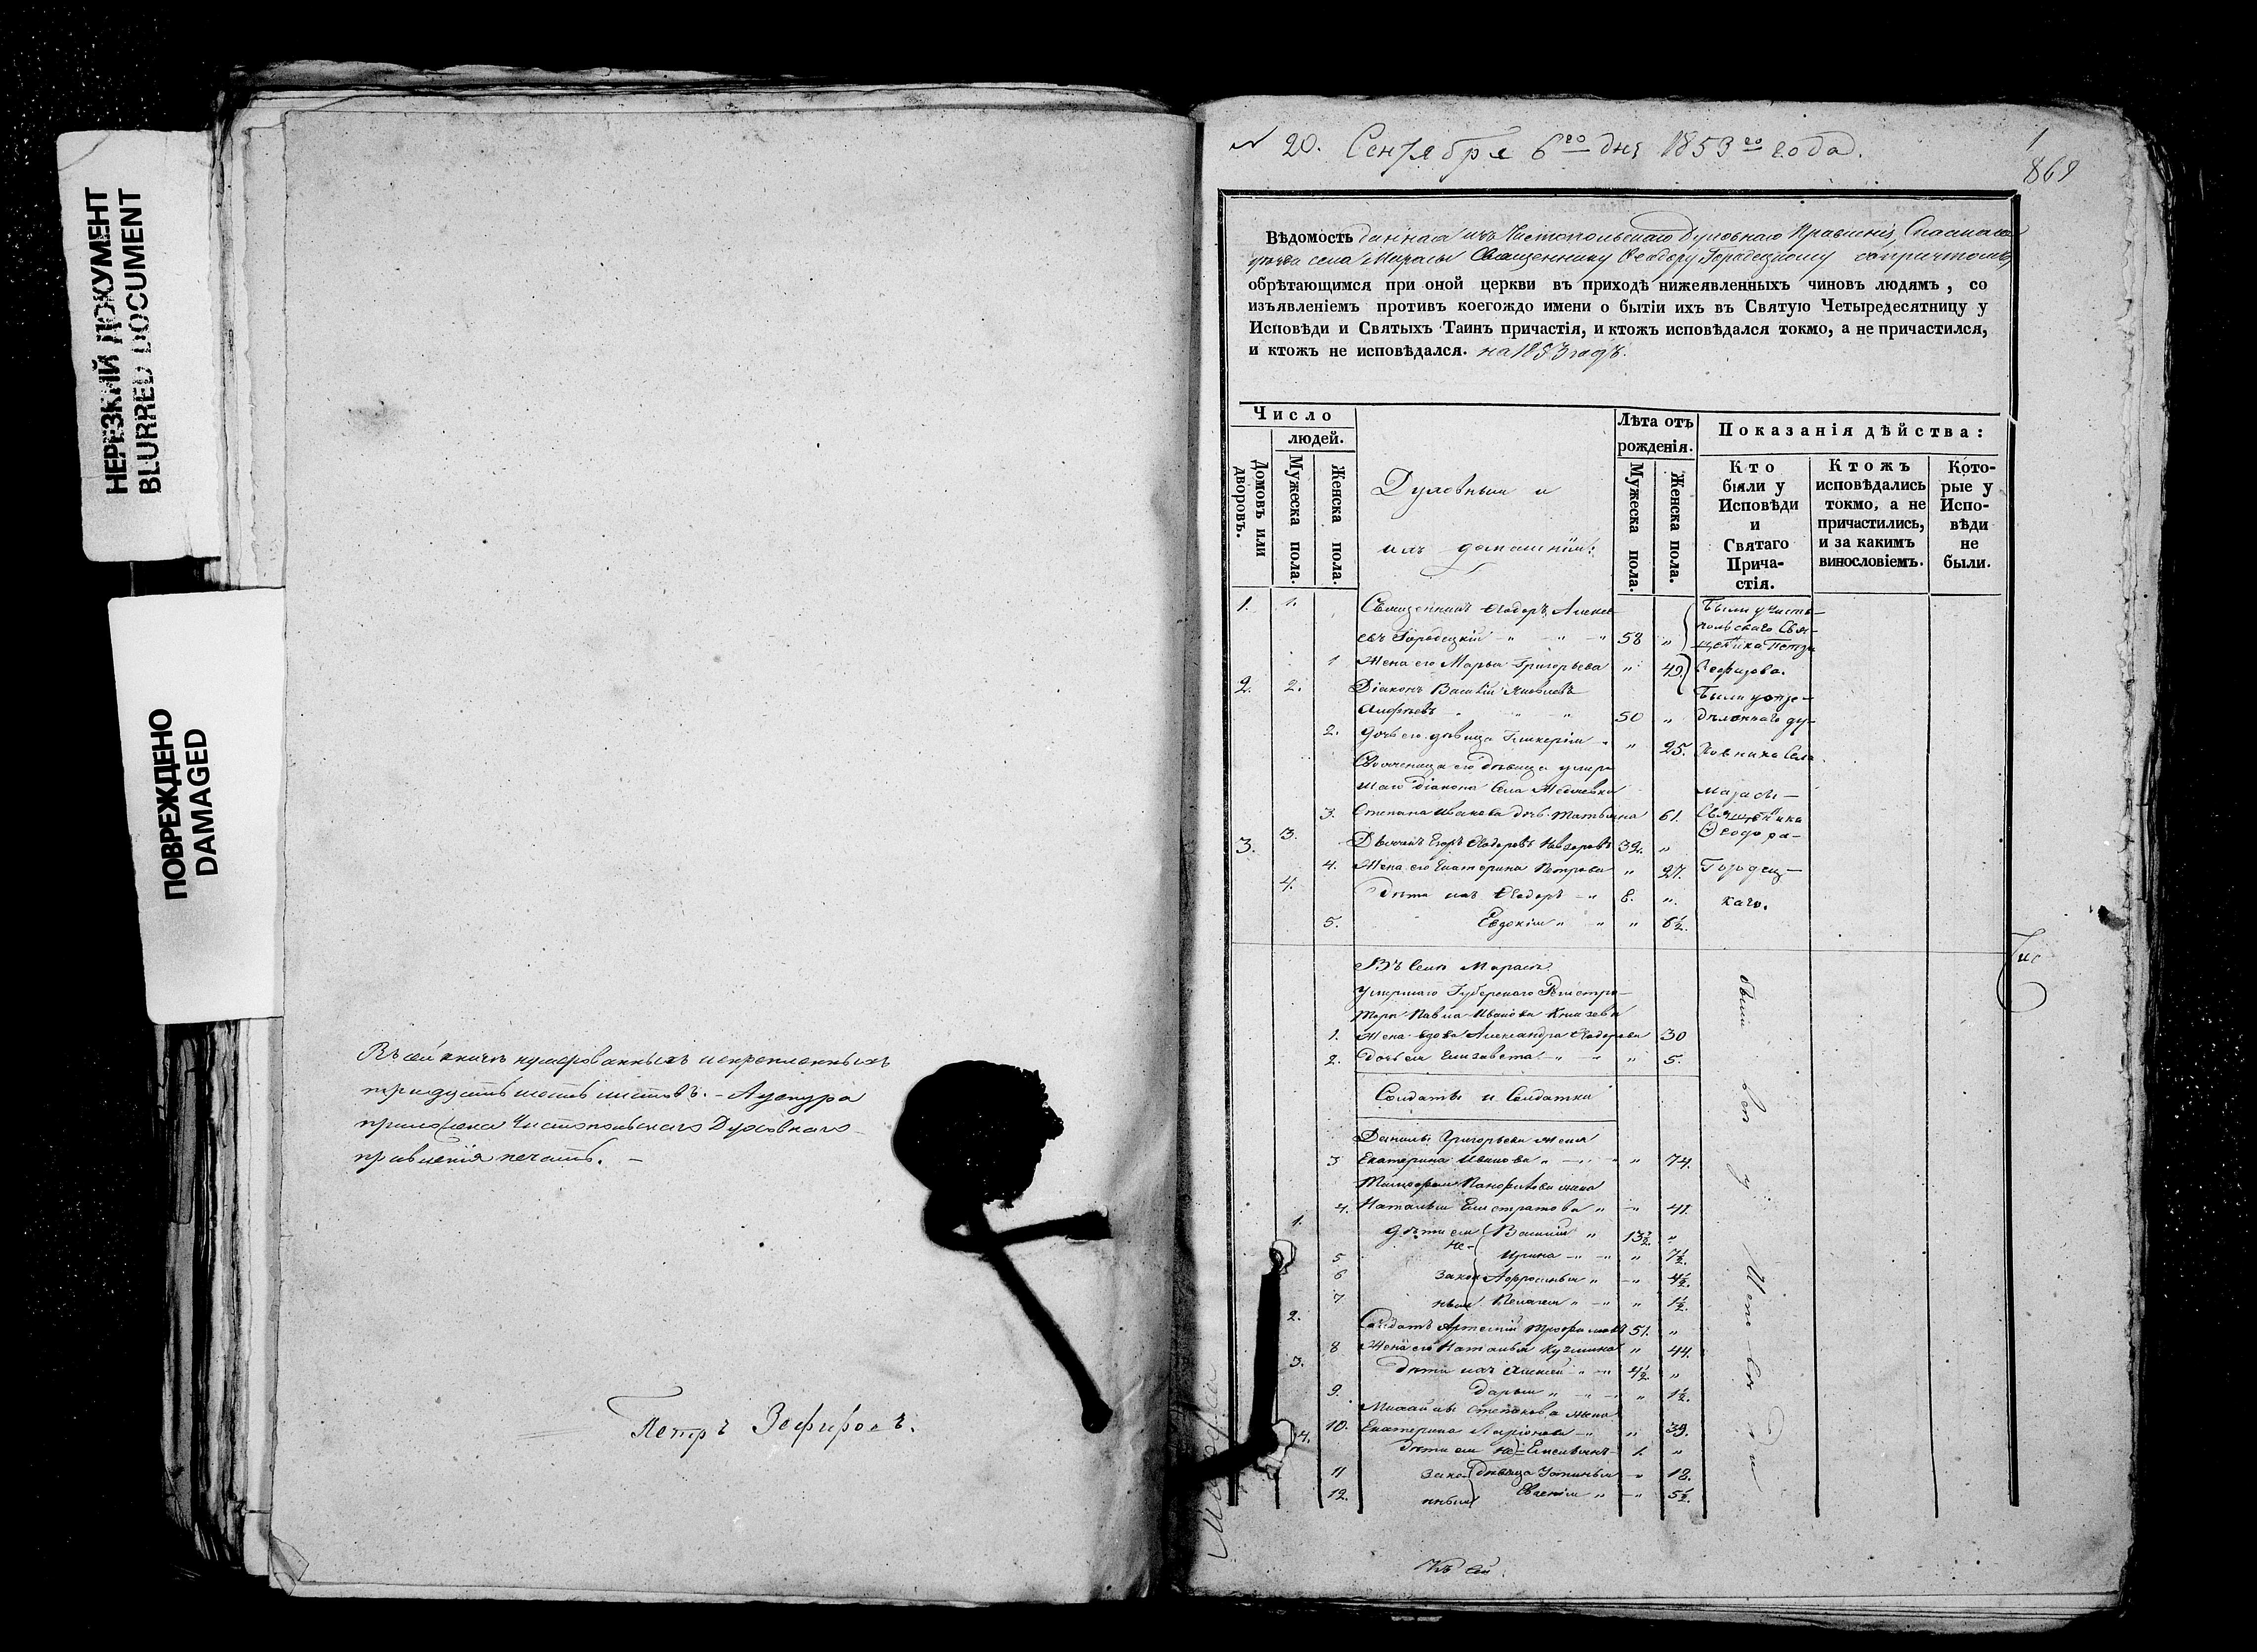 НЕРЕЗКИЙ ДОКУМЕНТ
BLURRED DOCUMENT
ПОВРЕЖДЕНО
DAMAGED
Въ сей книгѣ нумерованныхъ и скрепленныхъ
тридцать шесть листовъ. –
приложена Чистопольскаго Духовнаго
правленія печать. –
Петръ Зефировъ.
№ 20. Сентября 6го дня 1853го года.
1
869
Вѣдомость данная изъ Чистопольскаго Духовнаго Правленія, Спаскаго
уѣзда села Марасы Священнику Ѳеодору Городецкому съ причтомъ,
обрѣтающимся при оной церкви въ приходѣ нижеявленныхъ чиновъ людямъ, со
изъявленіемъ противъ коегождо имени о бытіи ихъ въ Святую Четыредесятницу у
Исповѣди и Святыхъ Таинъ причастія, и ктожъ исповѣдался токмо, а не причастился,
и ктожъ не исповѣдался. на 1853 годъ.
Число
людей.
Домовъ или дворовъ.
Мужеска пола.
Женска пола.
Духовныя и
ихъ домашнія:
Лѣта отъ
рожденія.
Мужеска пола.
Женска пола.
Показанія дѣйства:
Кто
были у
Исповѣди
и
Святаго
Прича-
стія.
Ктожъ
исповѣдались
токмо, а не
причастились,
и за какимъ
винословіемъ.
Кото-
рые у
Испо-
вѣди
не
были.
1. 1. Священникъ Ѳеодоръ Алексѣ
евъ Городецкій " – " – " 58 "
1 Жена его Марья Григорьева " 49
Были у Чисто-
польскаго Свя-
щенника Петра
Зефирова.
2. 2. Діаконъ Василій Яковлевъ
Алфеевъ " " " 50 "
2. Дочь его девица Гликерія " " 25.
Свояченица его девица умер
шаго діакона села
3. Степана Иванова дочь Татьяна 61.
3. 3. Дьячокъ Егоръ Ѳеодоровъ 32. "
4. Жена его Екатерина Петрова " 27.
4. Дѣти ихъ Ѳеодоръ – " 8. "
5. Евдокія " " " 6½
Были у опре-
дѣленнаго ду-
ховника села
Марасы –
Священника
Ѳеодора –
Городец-
каго.
Въ Селѣ Марасѣ
умершаго Губернскаго Регистра-
тора Павла Иванова Князева
1. Жена вдова Александра Ѳеодорова 30
2. Дочь ея Елизавета. " – " " 5.
Солдаты и Солдатки
Данилы Григорьева жена
3 Екатерина Иванова " – " " 74.
жена
4. Наталья Елистратова " – " 41.
1. Дѣти ея Василій " 13½ "
не-
5 Ирина – " – " " 7½
6 закон Афросинья " – " 4½
7 ныя Пелагея " – " " 1½
2. Солдатъ Артемій Трофимовъ 51. "
8 Жена его Наталья Кузмина " 44.
3. Дѣти ихъ Алексей – " – " 4½ "
9. Дарья " – " – " 1½
Михайлы Степанова жена
10. Екатерина Ларіонова – " " 39.
4. Дѣти ея не- Емельянъ – 1. "
11 зако- девица Устинья – " 18.
12. нныя Евгенія " – " 5½
были все у Исповеди